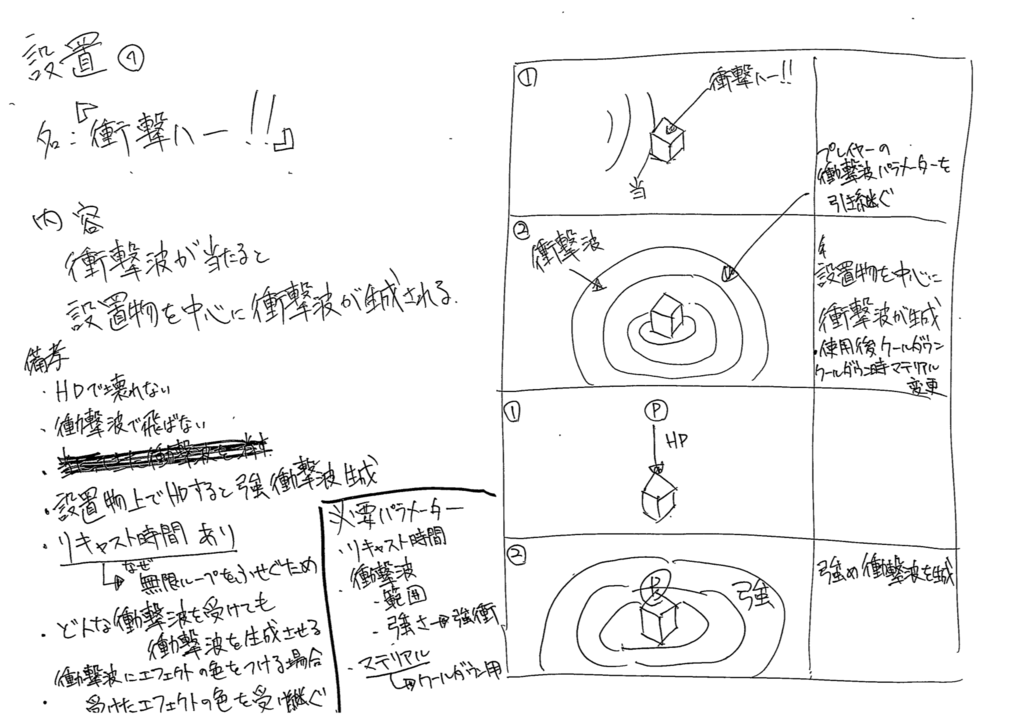 設置⑦
名:『衝撃ハー!!』
内容
衝撃波が当たると
設置物を中心に衝撃波が生成される.
備考
・HDで壊れない
・衝撃波で飛ばない
・設置物上でHDすると強衝撃波生成
・リキャスト時間 あり
なぜ
無限ループをふせぐため
・どんな衝撃波を受けても
衝撃波を生成させる
衝撃波にエフェクトの色をつける場合
・受けたエフェクトの色を受け継ぐ
必要パラメーター
・リキャスト時間
衝撃波
・範囲
・強さ→強衝
・マテリアル
クールダウン用
①
衝撃ハー!!
当
プレイヤーの
衝撃波パラメーターを
引き継ぐ
②
衝撃波
設置物を中心に
衝撃波が生成
・使用後クールダウン
クールダウン時マテリアル
変更
①
P
HD
②
P
強
強め衝撃波を生成